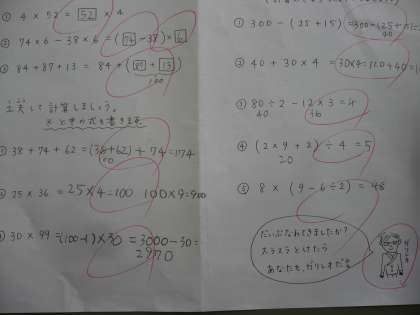 ① 4 × 52 = 52 × 4
② 74 × 6 - 38 × 6 = (74 - 38) × 6
③ 84 + 87 + 13 = 84 + (87 + 13)
100
工夫して計算しましょう。
※とちゅうの式も書きます。
38 + 74 + 62 = (38 + 62) + 74 = 174
100
② 25 × 36 = 25 × 4 = 100 100 × 9 = 900
30 × 99 = (100 - 1) × 30 = 3000 - 30 =
2970
① 300 - (25 + 15) = 300 -
40
② 40 + 30 × 4 =
③ 80 ÷ 2 - 12 × 3 = 4
40 36
④ (2 × 9 + 2) ÷ 4 = 5
20
⑤ 8 × (9 - 6 ÷ 2) = 48
だいぶなれてきましたか?
スラスラとけたら
あなたも、ガリレオだ